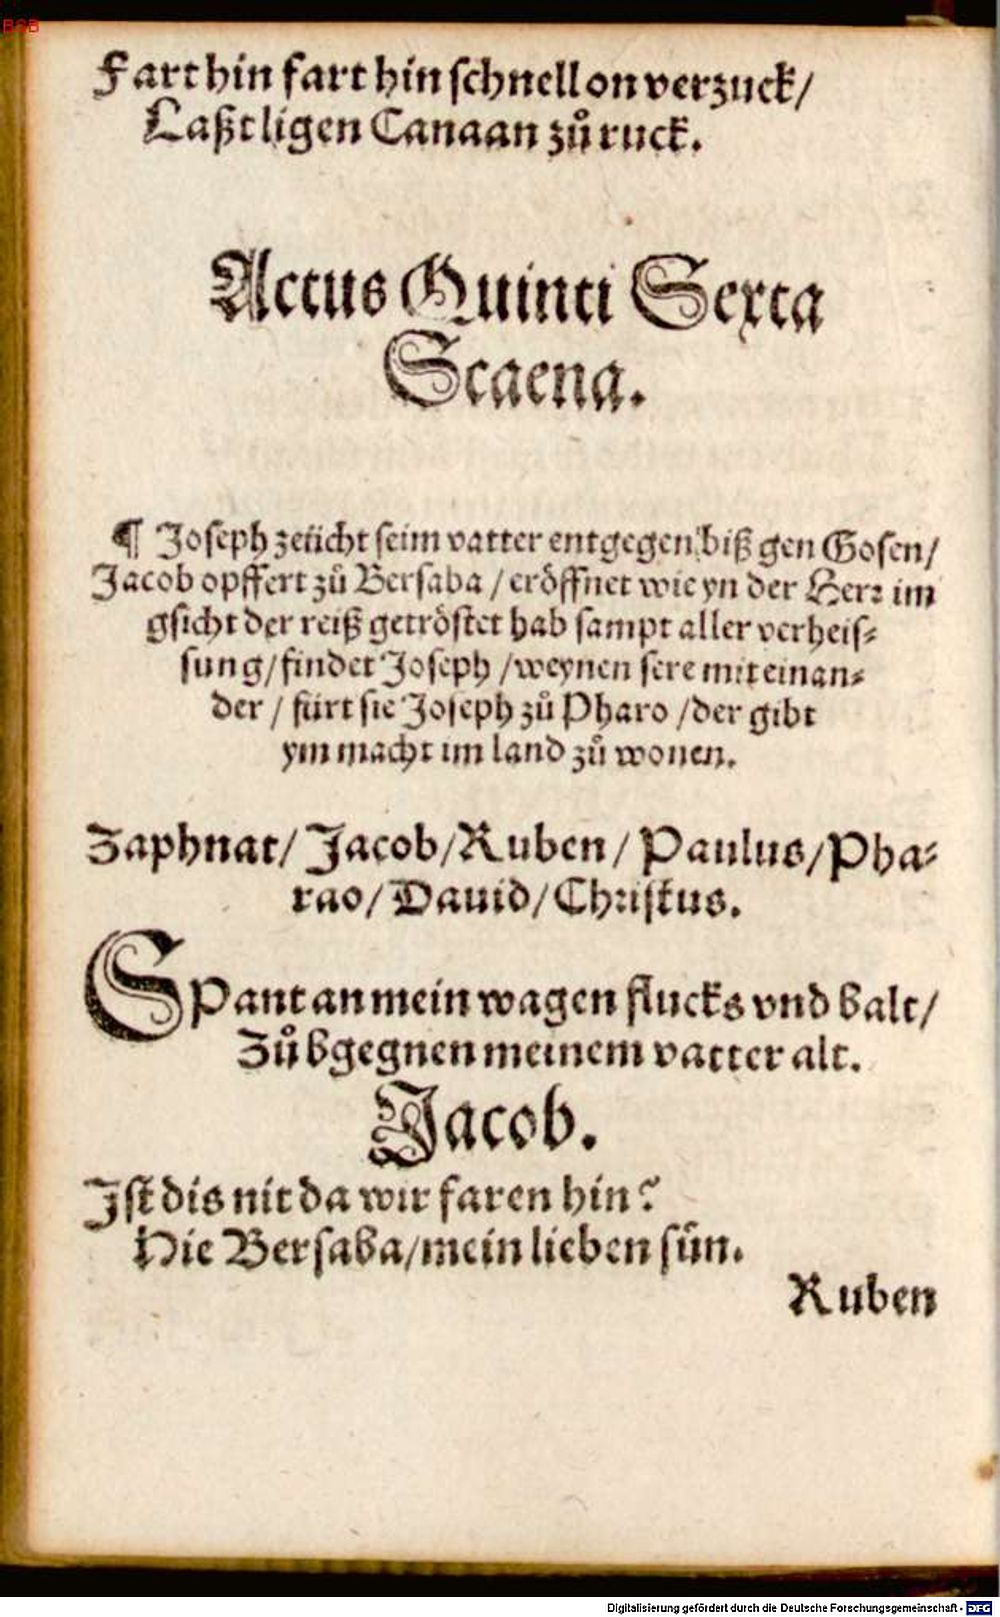 BSB
Fart hin fart hin schnell on verzuck/
Laßt ligen Canaan zů ruck.
Actus Quinti Sexta
Scaena.
¶ Joseph zeücht seim vatter entgegen biß gen Gosen/
Jacob opffert zů Bersaba / eröffnet wie yn der Herr im
gsicht der reiß getröstet hab sampt aller verheis⸗
sung/findet Joseph /weynen sere mit einan⸗
der / fürt sie Joseph zů Pharo /der gibt
ym macht im land zů wonen.
Zaphnat/ Jacob/Ruben/ Paulus/Pha⸗
rao/ Dauid/Christus.
Spant an mein wagen flucks vnd balt/
Zů bgegnen meinem vatter alt.
Jacob.
Jst dis nit da wir faren hin?
Hie Bersaba/mein lieben sün.
Ruben
Digitalisierung gefördert durch die Deutsche Forschungsgemeinschaft - DFG